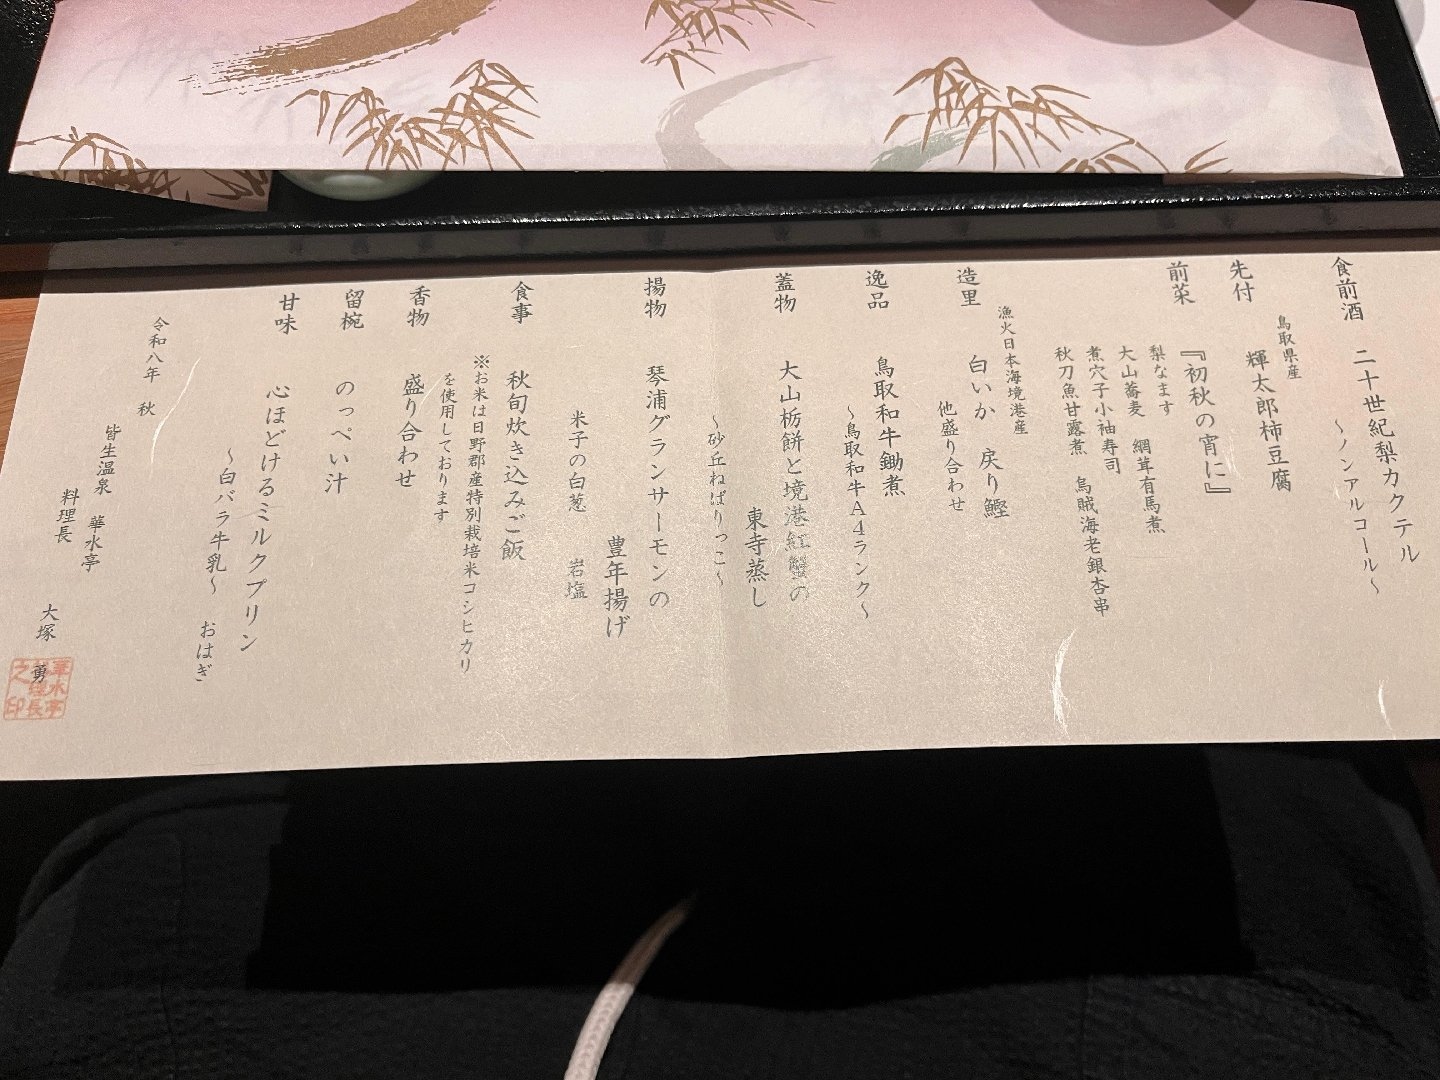 食前酒 二十世紀梨カクテル
〜ノンアルコール〜
先付 鳥取県産
輝太郎柿豆腐
前菜 『初秋の宵に』
梨なます 網茸有馬煮
大山蕎麦
煮穴子小袖寿司 烏賊海老銀杏串
秋刀魚甘露煮
漁火日本海境港産
造里 白いか 戻り鰹
他盛り合わせ
逸品 鳥取和牛鋤煮
〜鳥取和牛A4ランク〜
蓋物 大山栃餅と境港紅蟹の
東寺蒸し
〜砂丘ねばりっこ〜
揚物 琴浦グランサーモンの
豊年揚げ
米子の白葱 岩塩
食事 秋旬炊き込みご飯
※お米は日野郡産特別栽培米コシヒカリ
を使用しております
香物 盛り合わせ
留椀 のっぺい汁
甘味 心ほどけるミルクプリン
〜白バラ牛乳〜 おはぎ
令和八年 秋
皆生温泉 華水亭
料理長 大塚 勇
華水亭
料理長
之印